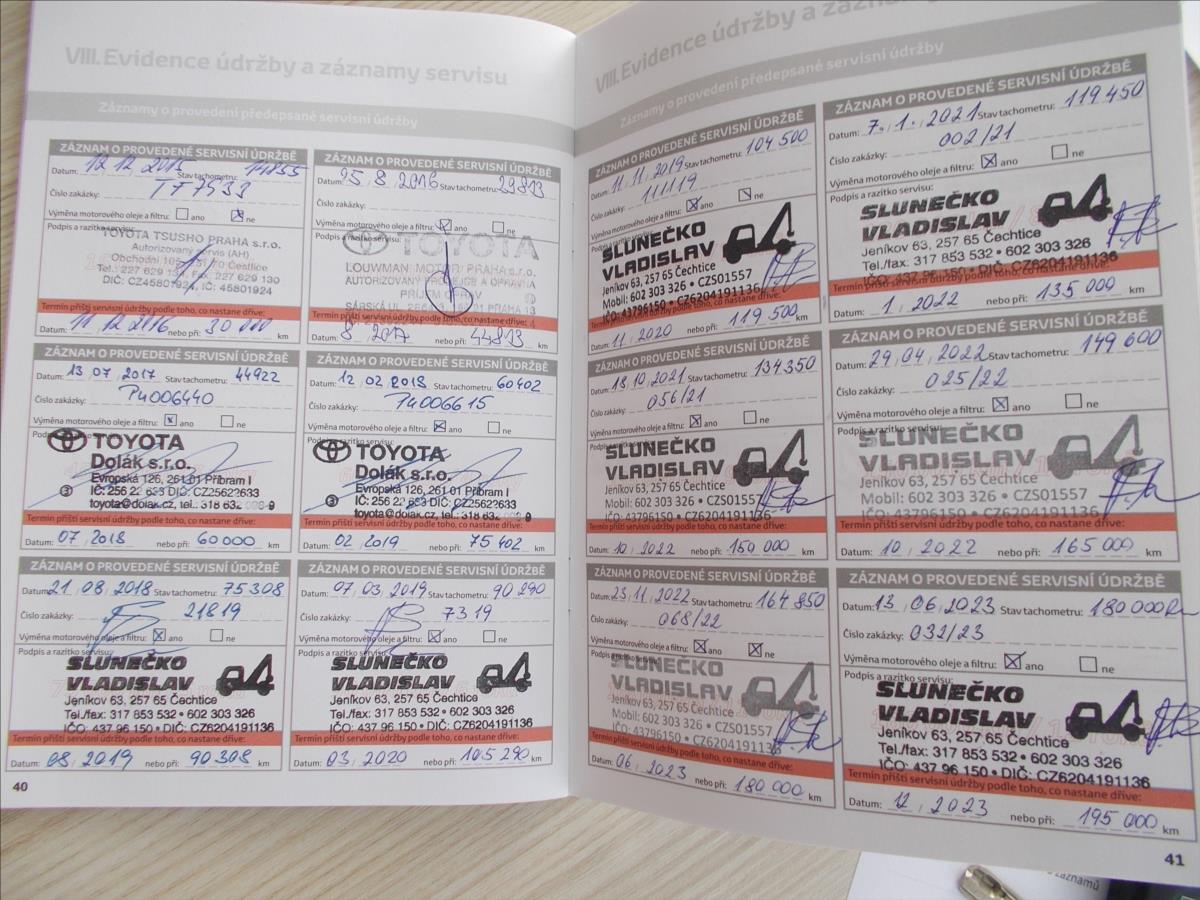 VIII. Evidence údržby a záznamy servisu
Záznamy o provedení předepsané servisní údržby
ZÁZNAM O PROVEDENÉ SERVISNÍ ÚDRŽBĚ
Datum: 12 12 2015 Stav tachometru: 14855
Číslo zakázky:
Výměna motorového oleje a filtru: ano ne
Podpis a razítko servisu:
TOYOTA TSUSHO PRAHA s.r.o.
Autorizovaný servis (AH)
Obchodní Čestlice
Tel.: 227 629 Fax. 227 629 130
DIČ: CZ45801924, IČ: 45801924
Termín příští servisní údržby podle toho, co nastane dříve:
Datum: 11 12 2016 nebo při: 30 000 km
ZÁZNAM O PROVEDENÉ SERVISNÍ ÚDRŽBĚ
Datum: 25 8 2016 Stav tachometru: 29813
Číslo zakázky:
Výměna motorového oleje a filtru: ano ne
Podpis a razítko servisu:
TOYOTA
LOUWMAN MOTOR PRAHA s.r.o.
AUTORIZOVANÝ PRODEJCE A OPRAVNA
PŘÍJEM OPRAV
PRAHA 13
Termín příští servisní údržby podle toho, co nastane dříve:
Datum: 8 2017 nebo při: 44813 km
ZÁZNAM O PROVEDENÉ SERVISNÍ ÚDRŽBĚ
Datum: 13 07 2017 Stav tachometru: 44922
Číslo zakázky: P4006440
Výměna motorového oleje a filtru: ano ne
Podpis a razítko servisu:
TOYOTA
Dolák s.r.o.
Evropská 126, 261 01 Příbram I
IČ: 256 22 633 DIČ: CZ25622633
toyota@dolak.cz, tel.: 318 632
Termín příští servisní údržby podle toho, co nastane dříve:
Datum: 07 2018 nebo při: 60000 km
ZÁZNAM O PROVEDENÉ SERVISNÍ ÚDRŽBĚ
Datum: 12 02 2018 Stav tachometru: 60402
Číslo zakázky: P4006615
Výměna motorového oleje a filtru: ano ne
Podpis a razítko servisu:
TOYOTA
Dolák s.r.o.
Evropská 126, 261 01 Příbram I
IČ: 256 22 633 DIČ: CZ25622633
toyota@dolak.cz, tel.: 318 632
Termín příští servisní údržby podle toho, co nastane dříve:
Datum: 02 2019 nebo při: 75 402 km
ZÁZNAM O PROVEDENÉ SERVISNÍ ÚDRŽBĚ
Datum: 21 08 2018 Stav tachometru: 75308
Číslo zakázky: 21819
Výměna motorového oleje a filtru: ano ne
Podpis a razítko servisu:
SLUNEČKO
VLADISLAV
Jeníkov 63, 257 65 Čechtice
Tel./fax: 317 853 532 • 602 303 326
IČO: 437 96 150 • DIČ: CZ6204191136
Termín příští servisní údržby podle toho, co nastane dříve:
Datum: 08 2019 nebo při: 90308 km
ZÁZNAM O PROVEDENÉ SERVISNÍ ÚDRŽBĚ
Datum: 07 03 2019 Stav tachometru: 90 290
Číslo zakázky: 7319
Výměna motorového oleje a filtru: ano ne
Podpis a razítko servisu:
SLUNEČKO
VLADISLAV
Jeníkov 63, 257 65 Čechtice
Tel./fax: 317 853 532 • 602 303 326
IČO: 437 96 150 • DIČ: CZ6204191136
Termín příští servisní údržby podle toho, co nastane dříve:
Datum: 03 2020 nebo při: 105 290 km
40
VIII. Evidence údržby a
Záznamy o provedení předepsané servisní údržby
ZÁZNAM O PROVEDENÉ SERVISNÍ ÚDRŽBĚ
Datum: 11 11 2019 Stav tachometru: 104 500
111119
Výměna motorového oleje a filtru: ano ne
Podpis a razítko servisu:
SLUNEČKO
VLADISLAV
Jeníkov 63, 257 65 Čechtice
Mobil: 602 303 326 • CZS01557
IČO: 43796150 • CZ6204191136
Termín příští servisní údržby podle toho, co nastane dříve:
Datum: 11 2020 nebo při: 119 500 km
ZÁZNAM O PROVEDENÉ SERVISNÍ ÚDRŽBĚ
Datum: 7. 1. 2021 Stav tachometru: 119 450
Číslo zakázky: 002/21
Výměna motorového oleje a filtru: ano ne
Podpis a razítko servisu:
SLUNEČKO
VLADISLAV
Jeníkov 63, 257 65 Čechtice
Tel./fax: 317 853 532 • 602 303 326
IČO: 437 96 150 • DIČ: CZ6204191136
Termín příští servisní údržby podle toho, co nastane dříve:
Datum: 1 2022 nebo při: 135 000 km
ZÁZNAM O PROVEDENÉ SERVISNÍ ÚDRŽBĚ
Datum: 18 10 2021 Stav tachometru: 134350
Číslo zakázky: 056/21
Výměna motorového oleje a filtru: ano ne
Podpis a razítko servisu:
SLUNEČKO
VLADISLAV
Jeníkov 63, 257 65 Čechtice
Mobil: 602 303 326 • CZS01557
IČO: 43796150 • CZ6204191136
Termín příští servisní údržby podle toho, co nastane dříve:
Datum: 10 2022 nebo při: 150 000 km
ZÁZNAM O PROVEDENÉ SERVISNÍ ÚDRŽBĚ
Datum: 29 04 2022 Stav tachometru: 149 600
Číslo zakázky: 025/22
Výměna motorového oleje a filtru: ano ne
Podpis a razítko servisu:
SLUNEČKO
VLADISLAV
Jeníkov 63, 257 65 Čechtice
Mobil: 602 303 326 • CZS01557
IČO: 43796150 • CZ6204191136
Termín příští servisní údržby podle toho, co nastane dříve:
Datum: 10 2022 nebo při: 165 000 km
ZÁZNAM O PROVEDENÉ SERVISNÍ ÚDRŽBĚ
Datum: 23 11 2022 Stav tachometru: 164 850
Číslo zakázky: 068/22
Výměna motorového oleje a filtru: ano ne
Podpis a razítko servisu:
SLUNEČKO
VLADISLAV
Jeníkov 63, 257 65 Čechtice
Mobil: 602 303 326 • CZS01557
IČO: 43796150 • CZ6204191136
Termín příští servisní údržby podle toho, co nastane dříve:
Datum: 06 2023 nebo při: 180 000 km
ZÁZNAM O PROVEDENÉ SERVISNÍ ÚDRŽBĚ
Datum: 13 06 2023 Stav tachometru: 180 000
Číslo zakázky: 032/23
Výměna motorového oleje a filtru: ano ne
Podpis a razítko servisu:
SLUNEČKO
VLADISLAV
Jeníkov 63, 257 65 Čechtice
Tel./fax: 317 853 532 • 602 303 326
IČO: 437 96 150 • DIČ: CZ6204191136
Termín příští servisní údržby podle toho, co nastane dříve:
Datum: 12 2023 nebo při: 195 000 km
41
záznamů